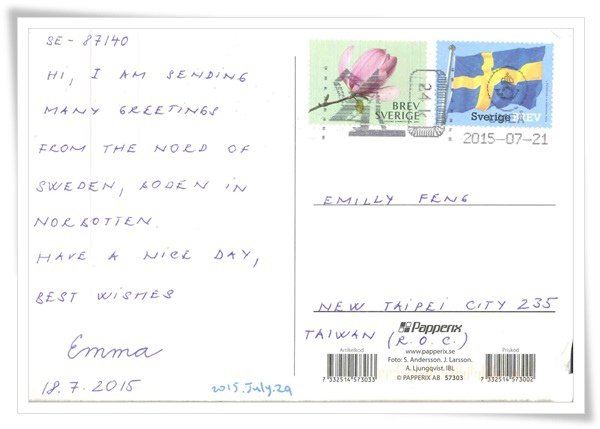 SE - 87140
HI, I AM SENDING
MANY GREETINGS
FROM THE NORD OF
SWEDEN, BODEN IN
NORBOTTEN.
HAVE A NICE DAY,
BEST WISHES
Emma
18.7.2015
2015.July.29
BREV
SVERIGE
Sverige BREV
2015-07-21
EMILLY FENG
NEW TAIPEI CITY 235
TAIWAN (R.O.C.)
Papperix
www.papperix.se
Foto: S. Andersson. J. Larsson.
A. Ljungqvist. IBL
© PAPPERIX AB 57303
Artikelkod
7 332514 573033
Priskod
7 332514 573002